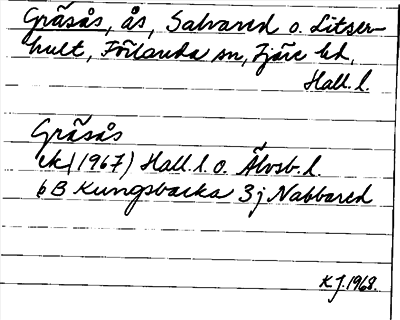 Gräsås, ås, Salvared o. Litser-
hult, Förlanda sn, Fjäre hd,
Hall. l.
Gräsås
ek (1967) Hall. l. o. Älvsb. l.
6B Kungsbacka 3j Nabbared
KJ. 1968.